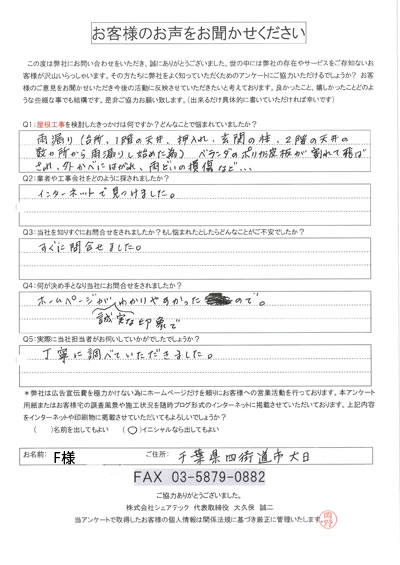 お客様のお声をお聞かせください
この度は弊社にお問い合わせをいただき、誠にありがとうございました。世の中には弊社の存在やサービスをご存知ないお
客様が沢山いらっしゃいます。その方たちに弊社をよく知っていただくためのアンケートにご協力いただけるでしょうか？ お客
様のご意見をお聞かせいただき今後の活動に反映させていただきたいと考えております。良かったこと、嬉しかったことどのよ
うな些細な事でも結構です。是非ご協力お願い致します。（出来るだけ具体的に書いていただければ幸いです）
Q1:屋根工事を検討したきっかけは何ですか？どんなことで悩まれていましたか？
雨漏り（台所、1階の天井、押入れ、玄関の柱、2階の天井の
数ヶ所から雨漏りし始めた為） ベランダのポリカ波板が割れて飛ば
され、外かべにはがれ、雨どいの損傷など...
Q2:業者や工事会社をどのように探されましたか？
インターネットで見つけました。
Q3:当社を知りすぐにお問合せをされましたか？もし悩まれたとしたらどんなことがご不安でしたか？
すぐに問合せました。
Q4:何が決め手となり当社にお問合せをされましたか？
ホームページがわかりやすかったので。
誠実な印象で
Q5:実際に当社担当者がお伺いしていかがでしたでしょうか？
丁寧に調べていただきました。
＊弊社は広告宣伝費を極力かけない為にホームページだけを頼りにお客様への営業活動を行っております。本アンケート
用紙またはお客様宅の調査風景や施工状況を随時ブログ形式のインターネットに掲載させていただいております。上記内容
をインターネットや印刷物に掲載させていただいてもよろしいでしょうか？
（ ）名前を出してもよい （○）イニシャルなら出してもよい
お名前： F様 ご住所： 千葉県四街道市大日
FAX 03-5879-0882
ご協力ありがとうございました。
株式会社シェアテック 代表取締役 大久保 誠二
当アンケートで取得したお客様の個人情報は関係法規に基づき厳正に管理いたします。